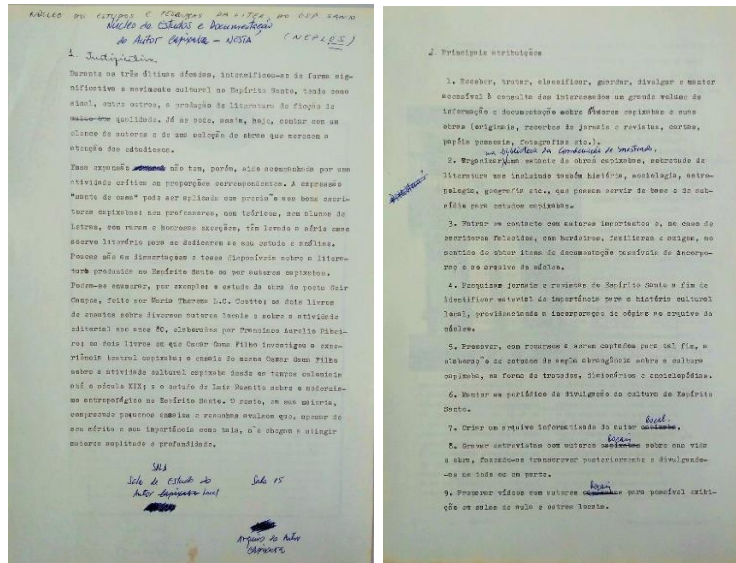 NÚCLEO DE ESTUDOS E PESQUISAS DA LITER. DO ESP SANTO
Núcleo de Estudos e Documentação (NEPLES)
do Autor Capixaba - NESIA
1. Justificativa
Durante as três últimas décadas, intensificou-se de forma sig-
nificativa o movimento cultural no Espírito Santo, tendo como
sinal, entre outros, a produção de literatura de ficção de
qualidade. Já se pode, assim, hoje, contar com um
elenco de autores e de uma coleção de obras que merecem a
atenção dos estudiosos.
Essa expansão não tem, porém, sido acompanhada por uma
atividade crítica em proporções correspondentes. A expressão
"santo de casa" pois ser aplicada com precisão aos bons escri-
tores capixabas: nem professores, nem teóricos, nem alunos de
Letras, com raras e honrosas exceções, têm levado a sério esse
acervo literário para se dedicarem ao seu estudo e análise.
Poucas são as dissertações e teses disponíveis sobre a litera-
tura produzida no Espírito Santo ou por autores capixabas.
Podem-se enumerar, por exemplo: o estudo da obra do poeta Geir
Campos, feito por Maria Thereza L.C. Coutto; os dois livros
de ensaios sobre diversos autores locais e sobre a atividade
editorial nos anos 80, elaborados por Francisco Aurelio Ribei-
ro; os dois livros em que Oscar Gama Filho investigou a expe-
riência teatral capixaba; o ensaio do mesmo Oscar Gama Filho
sobre a atividade cultural capixaba desde os tempos coloniais
até o século XIX; e o estudo de Luiz Busatto sobre o modernis-
mo antropofágico no Espírito Santo. O resto, em sua maioria,
compreende pequenos ensaios e resenhas avulsos que, apesar de
seu mérito e sua importância como tais, não chegam a atingir
maiores amplitude e profundidade.
SALA
Sala de Estudo do Sala 15
Autor Capixaba local
Arquivo do Autor
Capixaba
2. Principais atribuições
1. Receber, tratar, classificar, guardar, divulgar e manter
acessível à consulta dos interessados um grande volume de
informação e documentação sobre autores capixabas e suas
obras (originais, recortes de jornais e revistas, cartas,
papéis pessoais, fotografias etc.).
na biblioteca da Coordenação de Mestrado,
2. Organizar um estante de obras capixabas, sobretudo de
literatura mas incluindo também história, sociologia, antro-
pologia, geografia etc., que possam servir de base e de sub-
sídio para estudos capixabas.
3. Entrar em contacto com autores importantes e, no caso de
escritores falecidos, com herdeiros, familiares e amigos, no
sentido de obter itens de documentação passíveis de incorpo-
rar ao arquivo do núcleo.
4. Pesquisar jornais e revistas do Espírito Santo a fim de
identificar material de importância para a história cultural
local, providenciando a incorporação de cópias ao arquivo do
núcleo.
5. Promover, com recursos a serem captados para tal fim, a
elaboração de estudos de ampla abrangência sobre a cultura
capixaba, na forma de tratados, dicionários e enciclopédias.
6. Manter um periódico de divulgação da cultura do Espírito
Santo.
7. Criar um arquivo informatizado do autor capixaba. local.
8. Gravar entrevistas com autores capixabas locais sobre sua vida
e obra, fazendo-as transcrever posteriormente e divulgando-
-as no todo ou em parte.
9. Preparar vídeos com autores capixabas locais para possível exibi-
ção em salas de aula e outros locais.